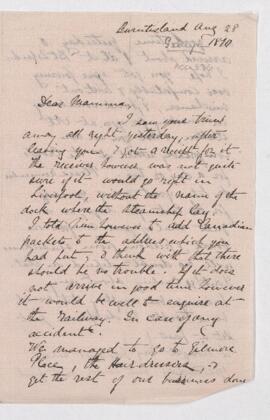 Burntisland Aug 28
1890
Dear Mamma,
I saw your trunk
away all right yesterday, after
leaving you I got a receipt for it
the receiver however was not quite
sure if it would go right in
Liverpool, without the name of the
dock where the Steamship lay.
I told him however to add Canadian
packets to the address which you
had put, & think with that there
should be no trouble. If it does
not arrive in good time however
it would be well to enquire at
the Railway. In case of any
accident.
We managed to go to Gilmore
Place, the Hairdressers, &
get the rest of our business done